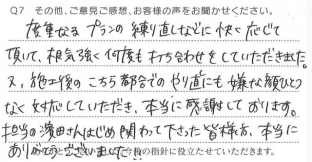 Q7 その他、ご意見ご感想、お客様の声をお聞かせください。
度重なるプランの練り直しなどに快く応じて
頂いて、根気強く何度も打ち合わせをしていただきました。
又、施工後のこちら都合でのやり直しにも嫌な顔ひとつ
なく対応していただき、本当に感謝しております。
担当の濱田さんはじめ関わって下さった皆様方、本当に
ありがとうございました!!
今後の指針に役立たせていただきます。